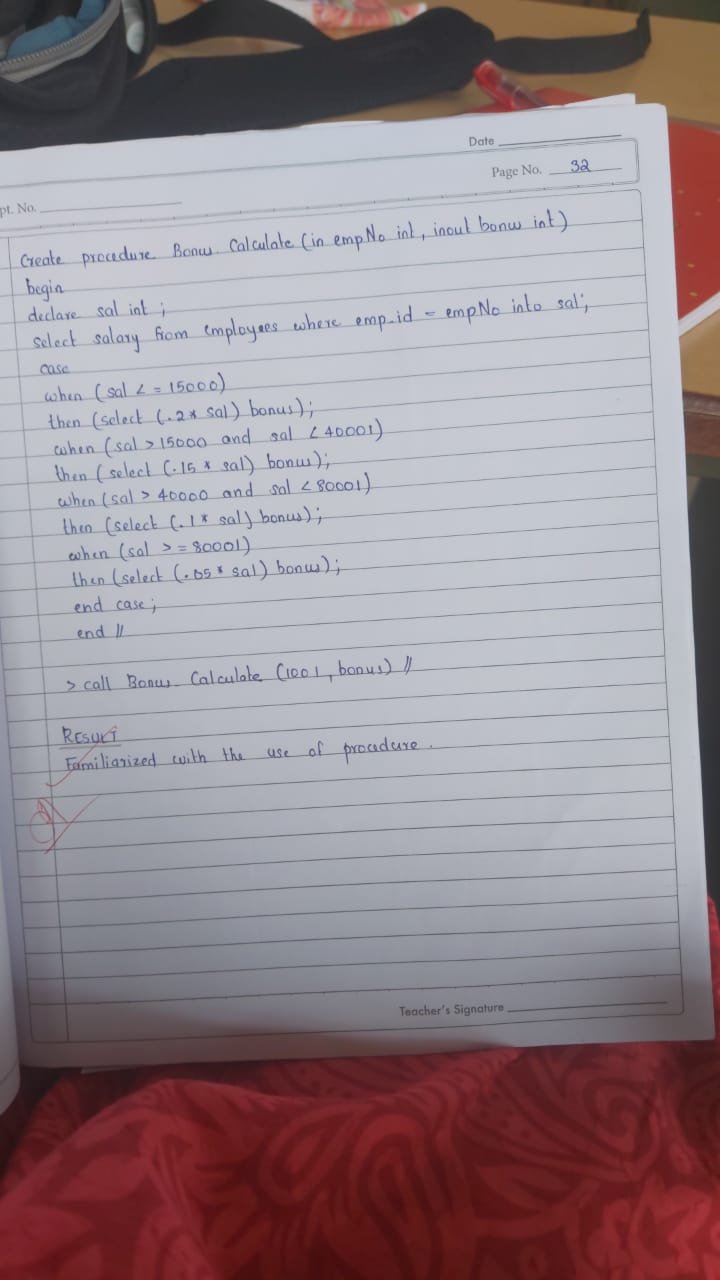 Date
Page No. 32
pt. No.
Create procedure Bonus Calculate (in empNo int, inout bonus int)
begin
declare sal int ;
select salary from employees where emp_id = empNo into sal;
case
when (sal <= 15000)
then (select (.2* sal) bonus);
when (sal > 15000 and sal < 40001)
then (select (.15 * sal) bonus);
when (sal > 40000 and sal < 80001)
then (select (.1* sal) bonus);
when (sal >= 80001)
then (select (.05* sal) bonus);
end case;
end //
> call Bonus Calculate (1001, bonus) //
RESULT
Familiarized with the use of procedure.
Teacher's Signature